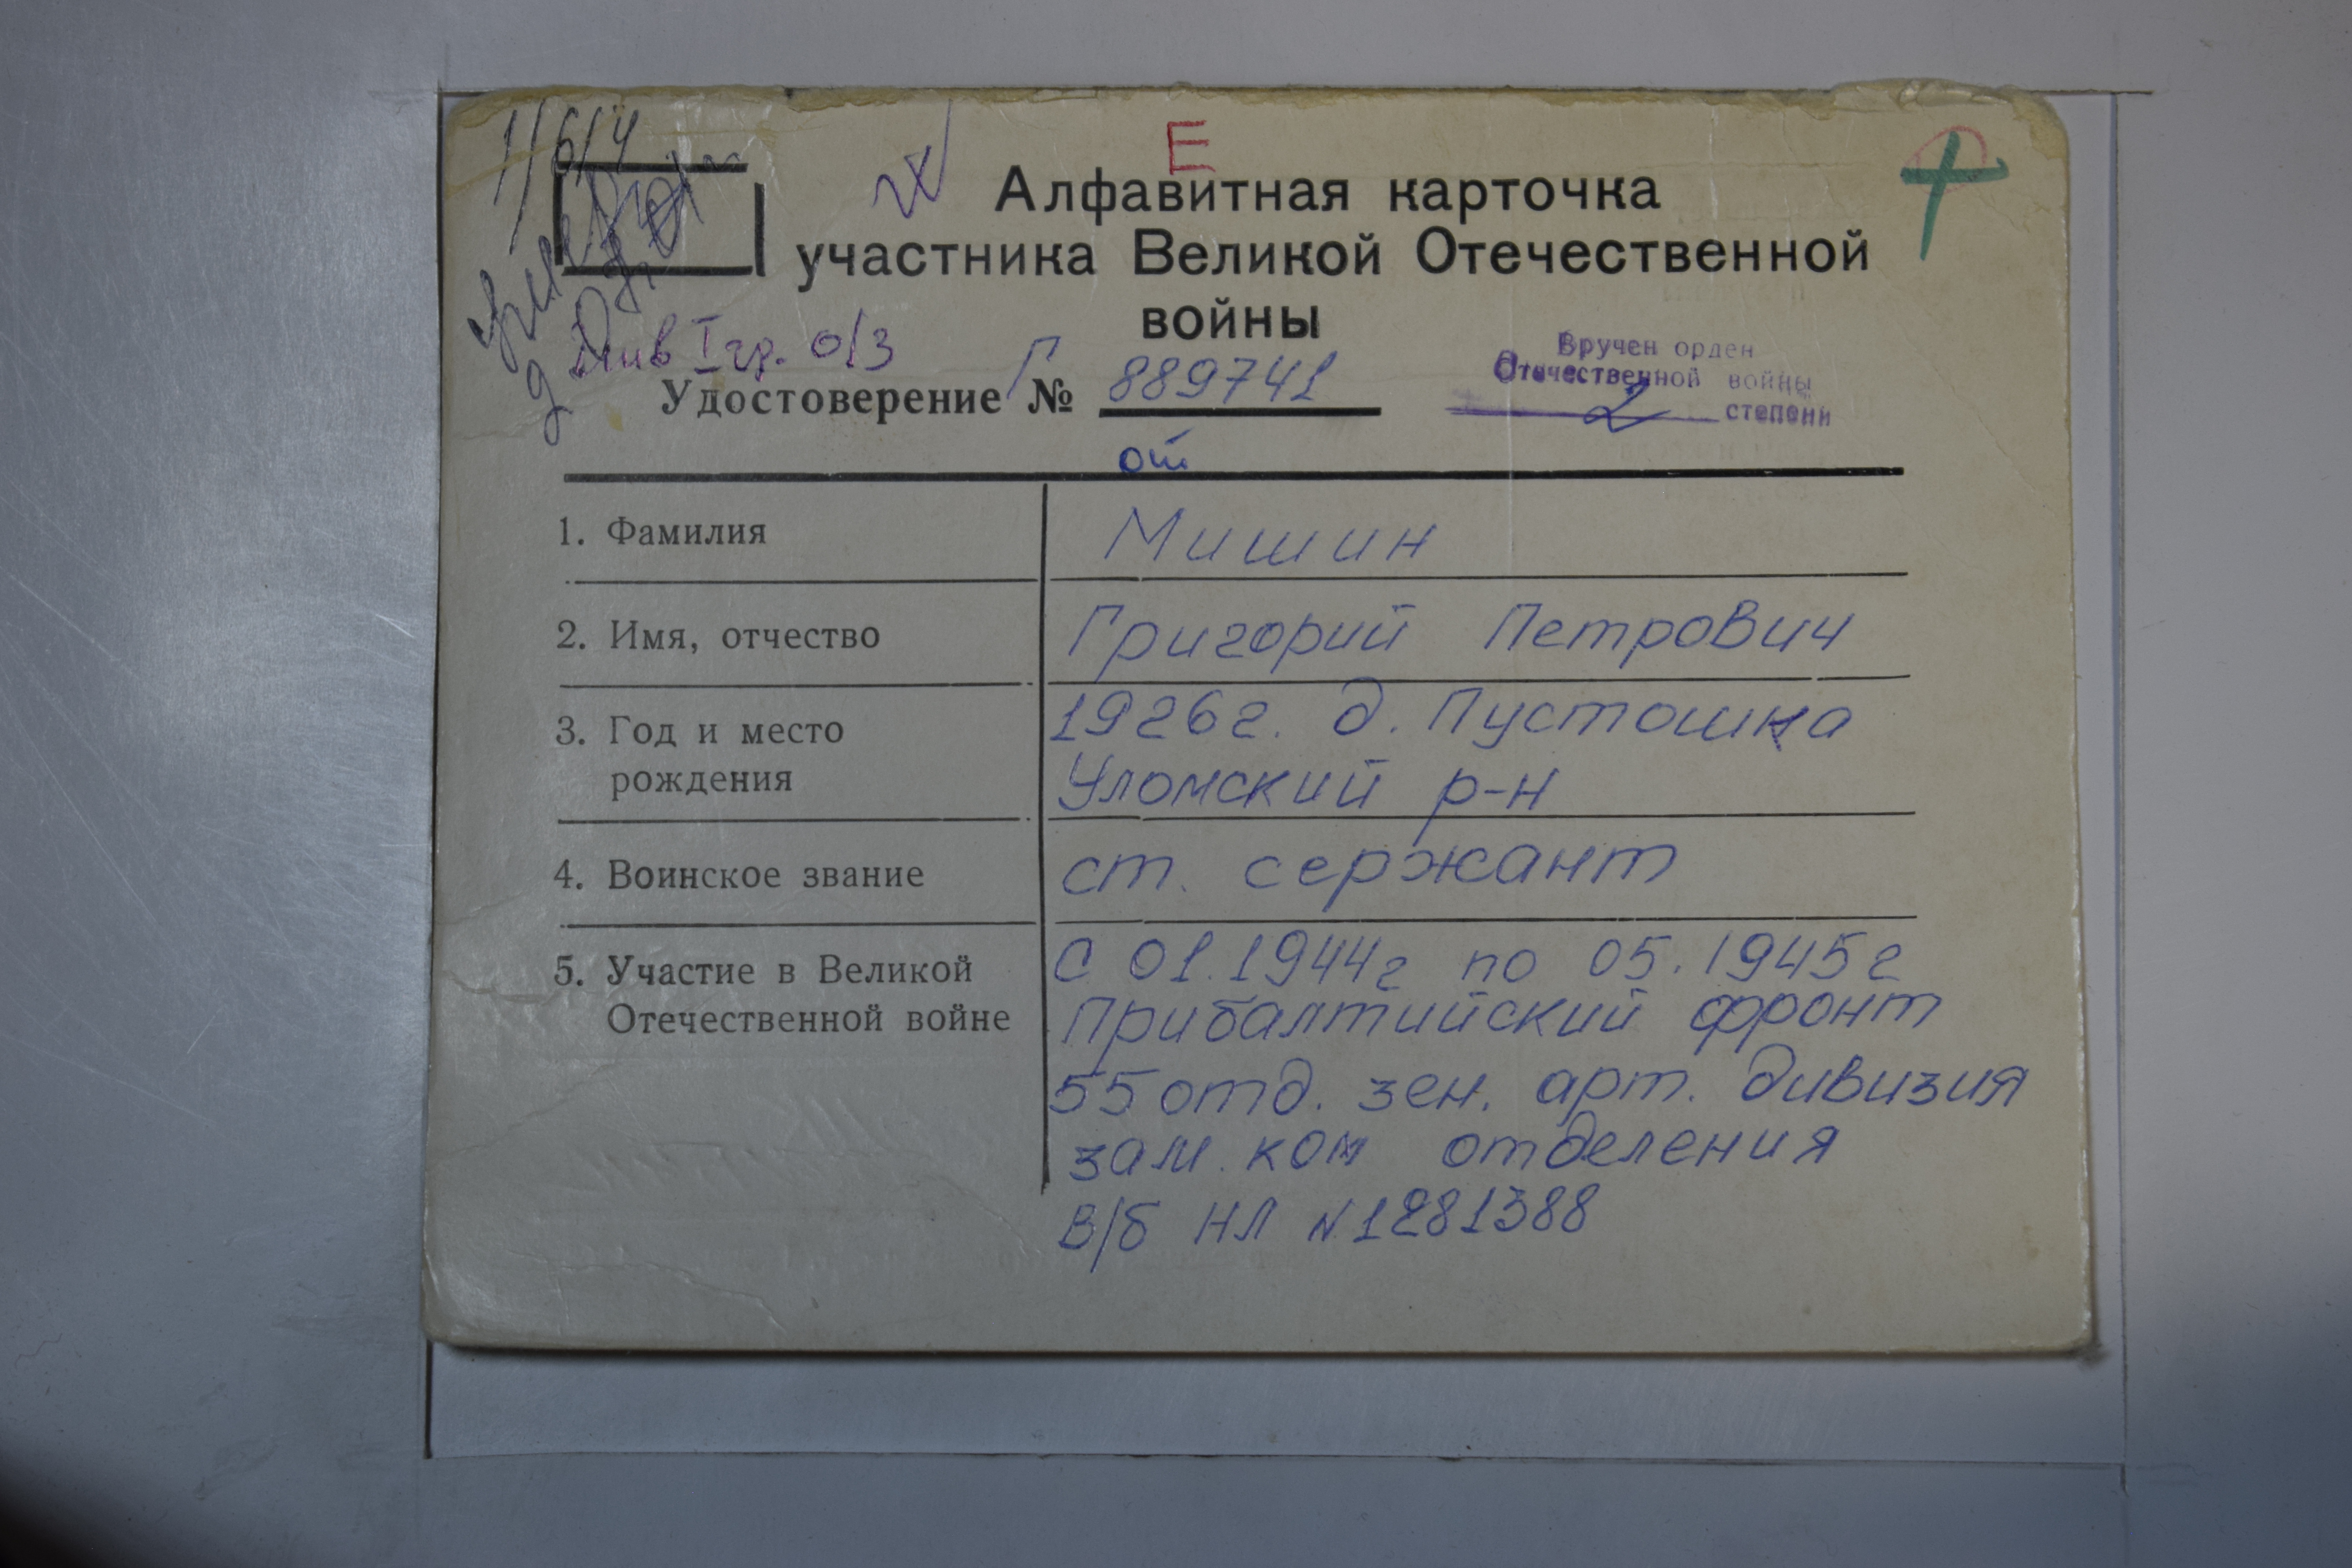 1/6/4
Е
Алфавитная карточка
участника Великой Отечественной
войны
инв I гр. о/з
Вручен орден
Отечественной войны
2 степени
Удостоверение Г № 889741
от
1. Фамилия
Мишин
2. Имя, отчество
Григорий Петрович
3. Год и место
рождения
1926г. д. Пустошка
Уломский р-н
4. Воинское звание
ст. сержант
5. Участие в Великой
Отечественной войне
С 01.1944г по 05.1945г
Прибалтийский фронт
55 отд. зен. арт. дивизия
зам. ком отделения
В/б НЛ №1281388